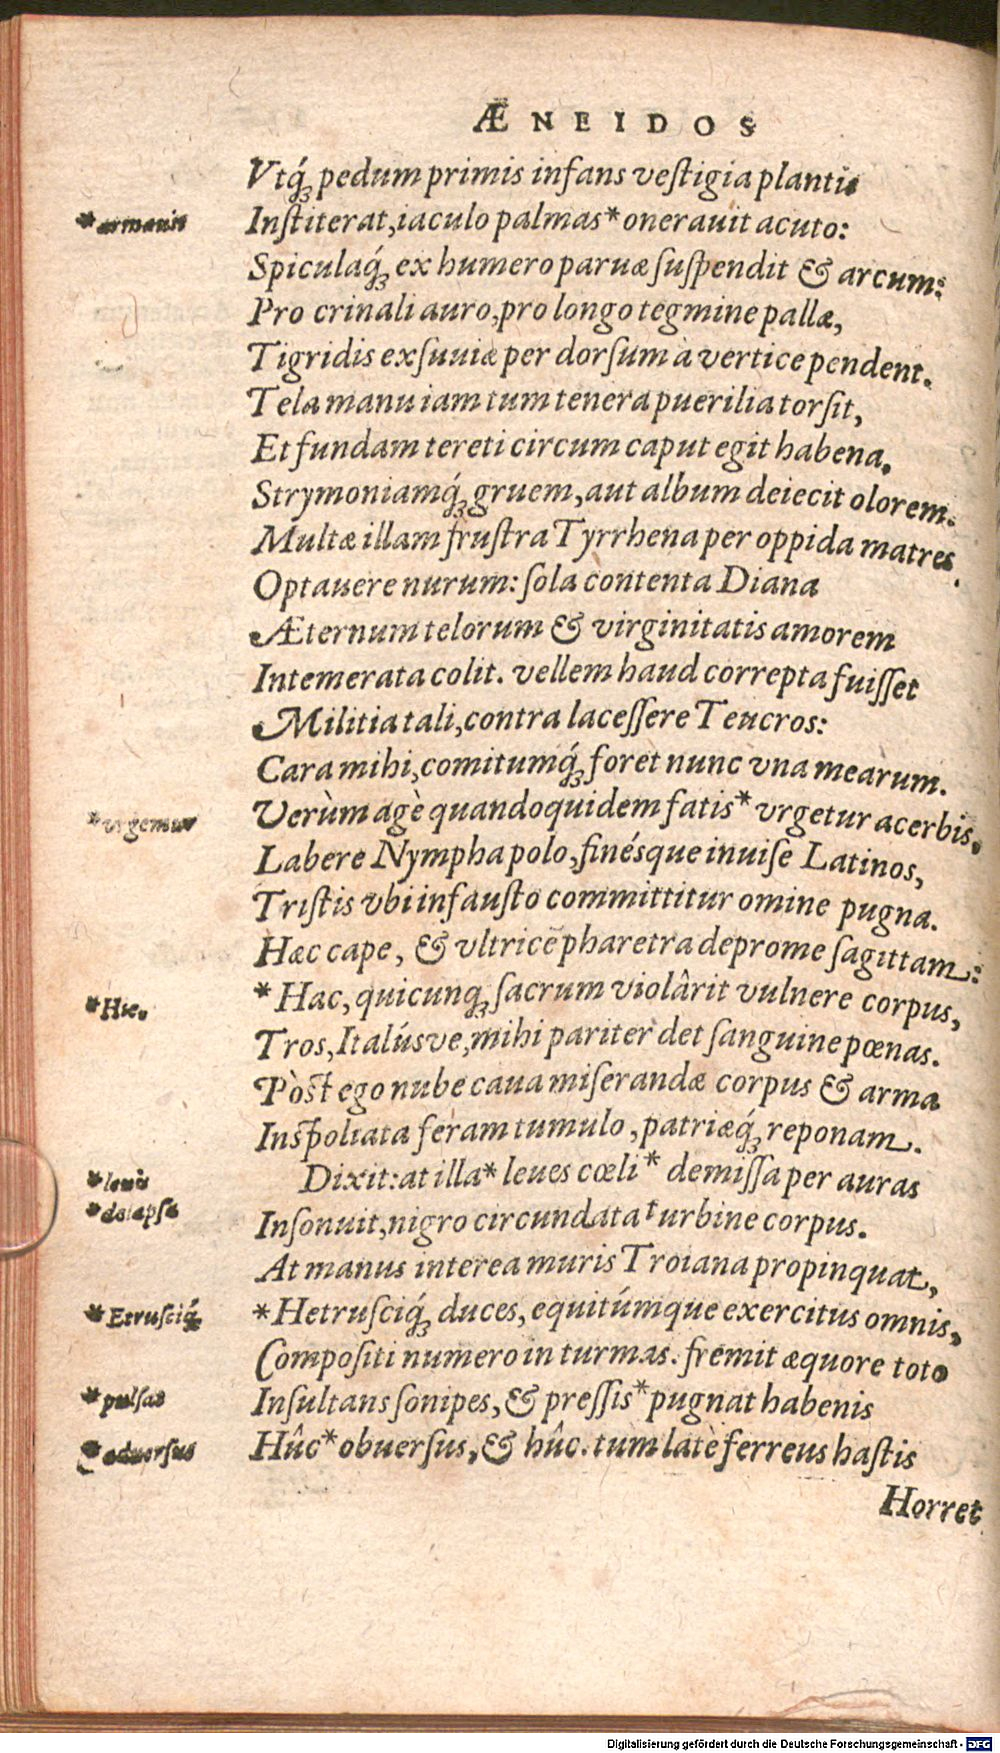 ÆNEIDOS
Vtq́ꝫ pedum primis infans veſtigia plantis
*armauit
Inſtiterat, iaculo palmas * onerauit acuto:
Spiculaq́ꝫ ex humero paruæ ſuſpendit & arcum:
Pro crinali auro, pro longo tegmine pallæ,
Tigridis exſuuiæ per dorſum à vertice pendent.
Tela manu iam tum tenera puerilia torſit,
Et fundam tereti circum caput egit habena.
Strymoniamq́ꝫ gruem, aut album deiecit olorem.
Multæ illam fruſtra Tyrrhena per oppida matres
Optauere nurum: ſola contenta Diana
Æternum telorum & virginitatis amorem
Intemerata colit. vellem haud correpta fuiſſet
Militia tali, contra laceſſere Teucros:
Cara mihi, comitumq́ꝫ foret nunc vna mearum.
*vrgemur
Verùm agè quandoquidem fatis * vrgetur acerbis,
Labere Nympha polo, finésque inuiſe Latinos,
Triſtis vbi infauſto committitur omine pugna.
Hæc cape, & vltricē pharetra deprome ſagittam:
*Hic.
* Hac, quicunqꝫ ſacrum violârit vulnere corpus,
Tros, Italúsve, mihi pariter det ſanguine pœnas.
Pòſt ego nube caua miſerandæ corpus & arma
Inſpoliata feram tumulo, patriæq́ꝫ reponam.
*leuis
Dixit: at illa * leues cœli * demiſſa per auras
*delapſa
Inſonuit, nigro circundata turbine corpus.
At manus interea muris Troiana propinquat,
*Etruſciq́ꝫ
* Hetruſciq́ꝫ duces, equitúmque exercitus omnis,
Compoſiti numero in turmas. fremit æquore toto
*pulſas
Inſultans ſonipes, & preſſis * pugnat habenis
*aduerſus
Hûc * obuerſus, & hûc. tum latè ferreus haſtis
Horret
Digitalisierung gefördert durch die Deutsche Forschungsgemeinschaft - DFG